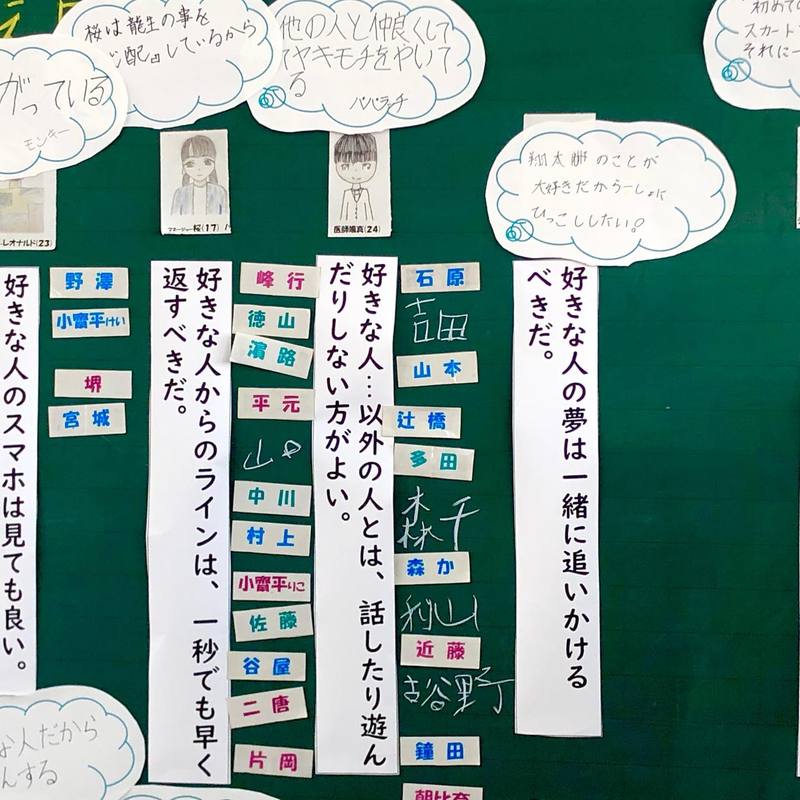 桜は龍生の事を
配しているから
他の人と仲良くして
てヤキモチをやいて
る
パパラッチ
がっている
モンキー
翔太郎のことが
大好きだから一しょに
ひっこししたい。
初めて
スカート
それに一
レオナルド(23)
マネージャー桜(17)
医師颯真(24)
好きな人の夢は一緒に追いかける
べきだ。
石原
吉田
山本
辻橋
多田
森千
森か
利山
近藤
古谷野
鐘田
朝比奈
好きな人…以外の人とは、話したり遊ん
だりしない方がよい。
峰行
徳山
濵路
平元
山口
中川
村上
小齋平りこ
佐藤
谷屋
二唐
片岡
好きな人からのラインは、一秒でも早く
返すべきだ。
野澤
小齋平けい
堺
宮城
好きな人のスマホは見ても良い。
な人だから
んする